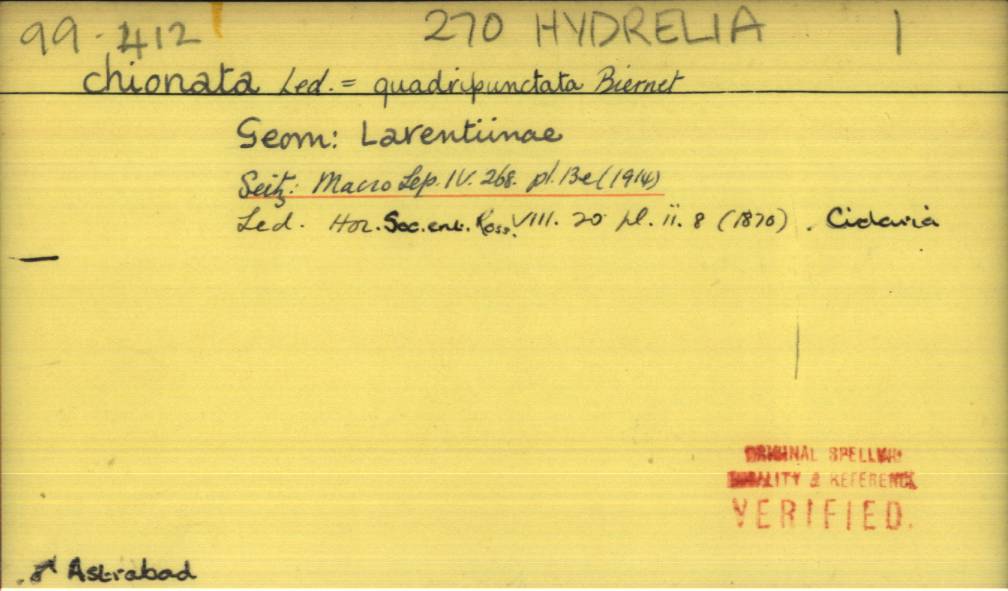 99.412 270 HYDRELIA 1
chionata Led. = quadripunctata Biernet
Geom: Larentiinae
Seitz: Macro Lep. IV. 268. pl. 13e (1914)
Led. Hor. Soc. ent. Ross. VIII. 20 pl. ii. 8 (1870). Cidaria
ORIGINAL SPELLING
LOCALITY & REFERENCE
VERIFIED.
♂ Astrabad